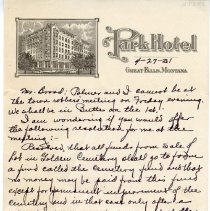 Park Hotel
Great Falls, Montana
4-27-31
Mr. Brood; Palmer and I cannot be at
the town meeting on Friday evening.
We shall be in Butte on the 1st.
I am wondering if you would offer
the following resolution for me at the
meeting:-
Resolved, that all funds from sale of
lot in Golden Cemetery shall go to form
a fund called the cemetery fund and that
no money may be paid from this fund
except for permanent improvement of the
cemetery and in that case only after a